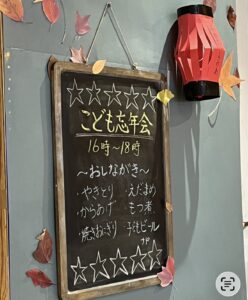 こども忘年会
16時〜18時
〜おしながき〜
・やきとり ・えだまめ
・からあげ ・もつ煮
・焼きおにぎり ・子どもビール